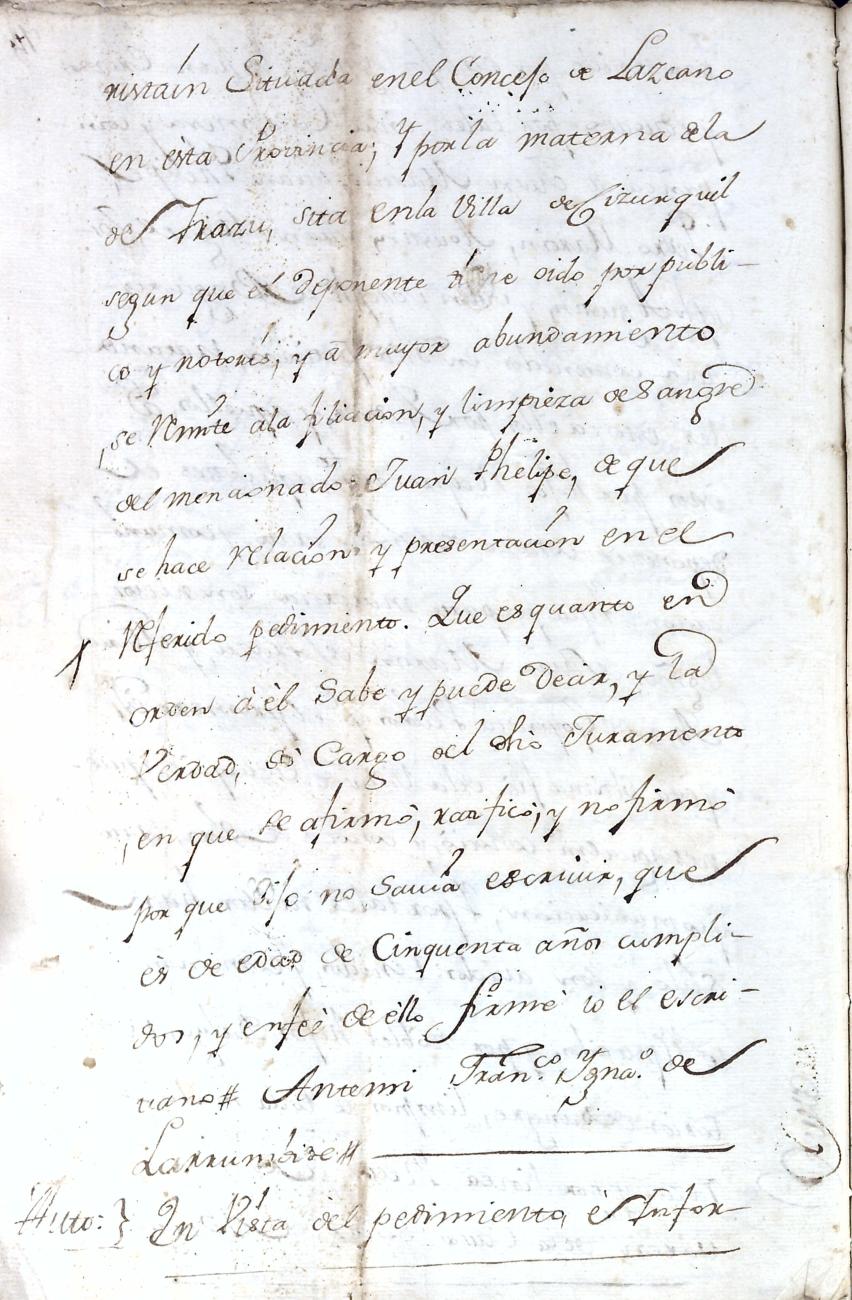 ristain Situada enel Concejo de Lazcano
en ésta Provincia; Y por la materna dela
de Irazu, sita enla Villa de Cizurquil
segun que el deponente tiene oido por publi-
co y notorio, y a mayor abundamiento
se Rmite ala filiacion, y limpieza de Sangre
del mencionado Juan Phelipe, de que
se hace relacion y presentacion en el
Referido pedimento. Que es quanto en
orden à él Sabe y puede Decir, y la
Verdad, só Cargo del dho Juramento
en que se afirmó, ratificó, y no firmó
por que dijo no Savia escrivir, que
es de edad de Cinquenta años cumpli-
dos, y enfeé de éllo firmé io el escri-
vano # Antemi Fran.co Ygna.o de
Larrumbide #
Auto: } In Vista del pedimento, è Infor-